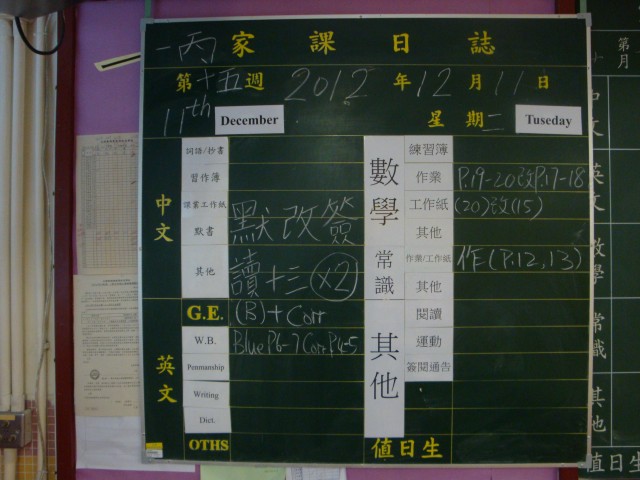 一丙 家課日誌
第十五週 2012 年 12 月 11 日
11th December 星期二 Tuseday
中文
詞語/抄書
習作簿
課業工作紙
默書 默改簽
其他 讀十三(x2)
英文
G.E. (B)+Corr
W.B. Blue P.6-7 Corr P.4-5
Penmanship
Writing
Dict.
OTHS
數學
練習簿
作業 P.19-20改P.17-18
工作紙 (20)改(15)
其他
常識
作業/工作紙 作(P.12,13)
其他
其他
閱讀
運動
簽閱通告
值日生
第
月
中文
英文
數學
常識
其他
值日生